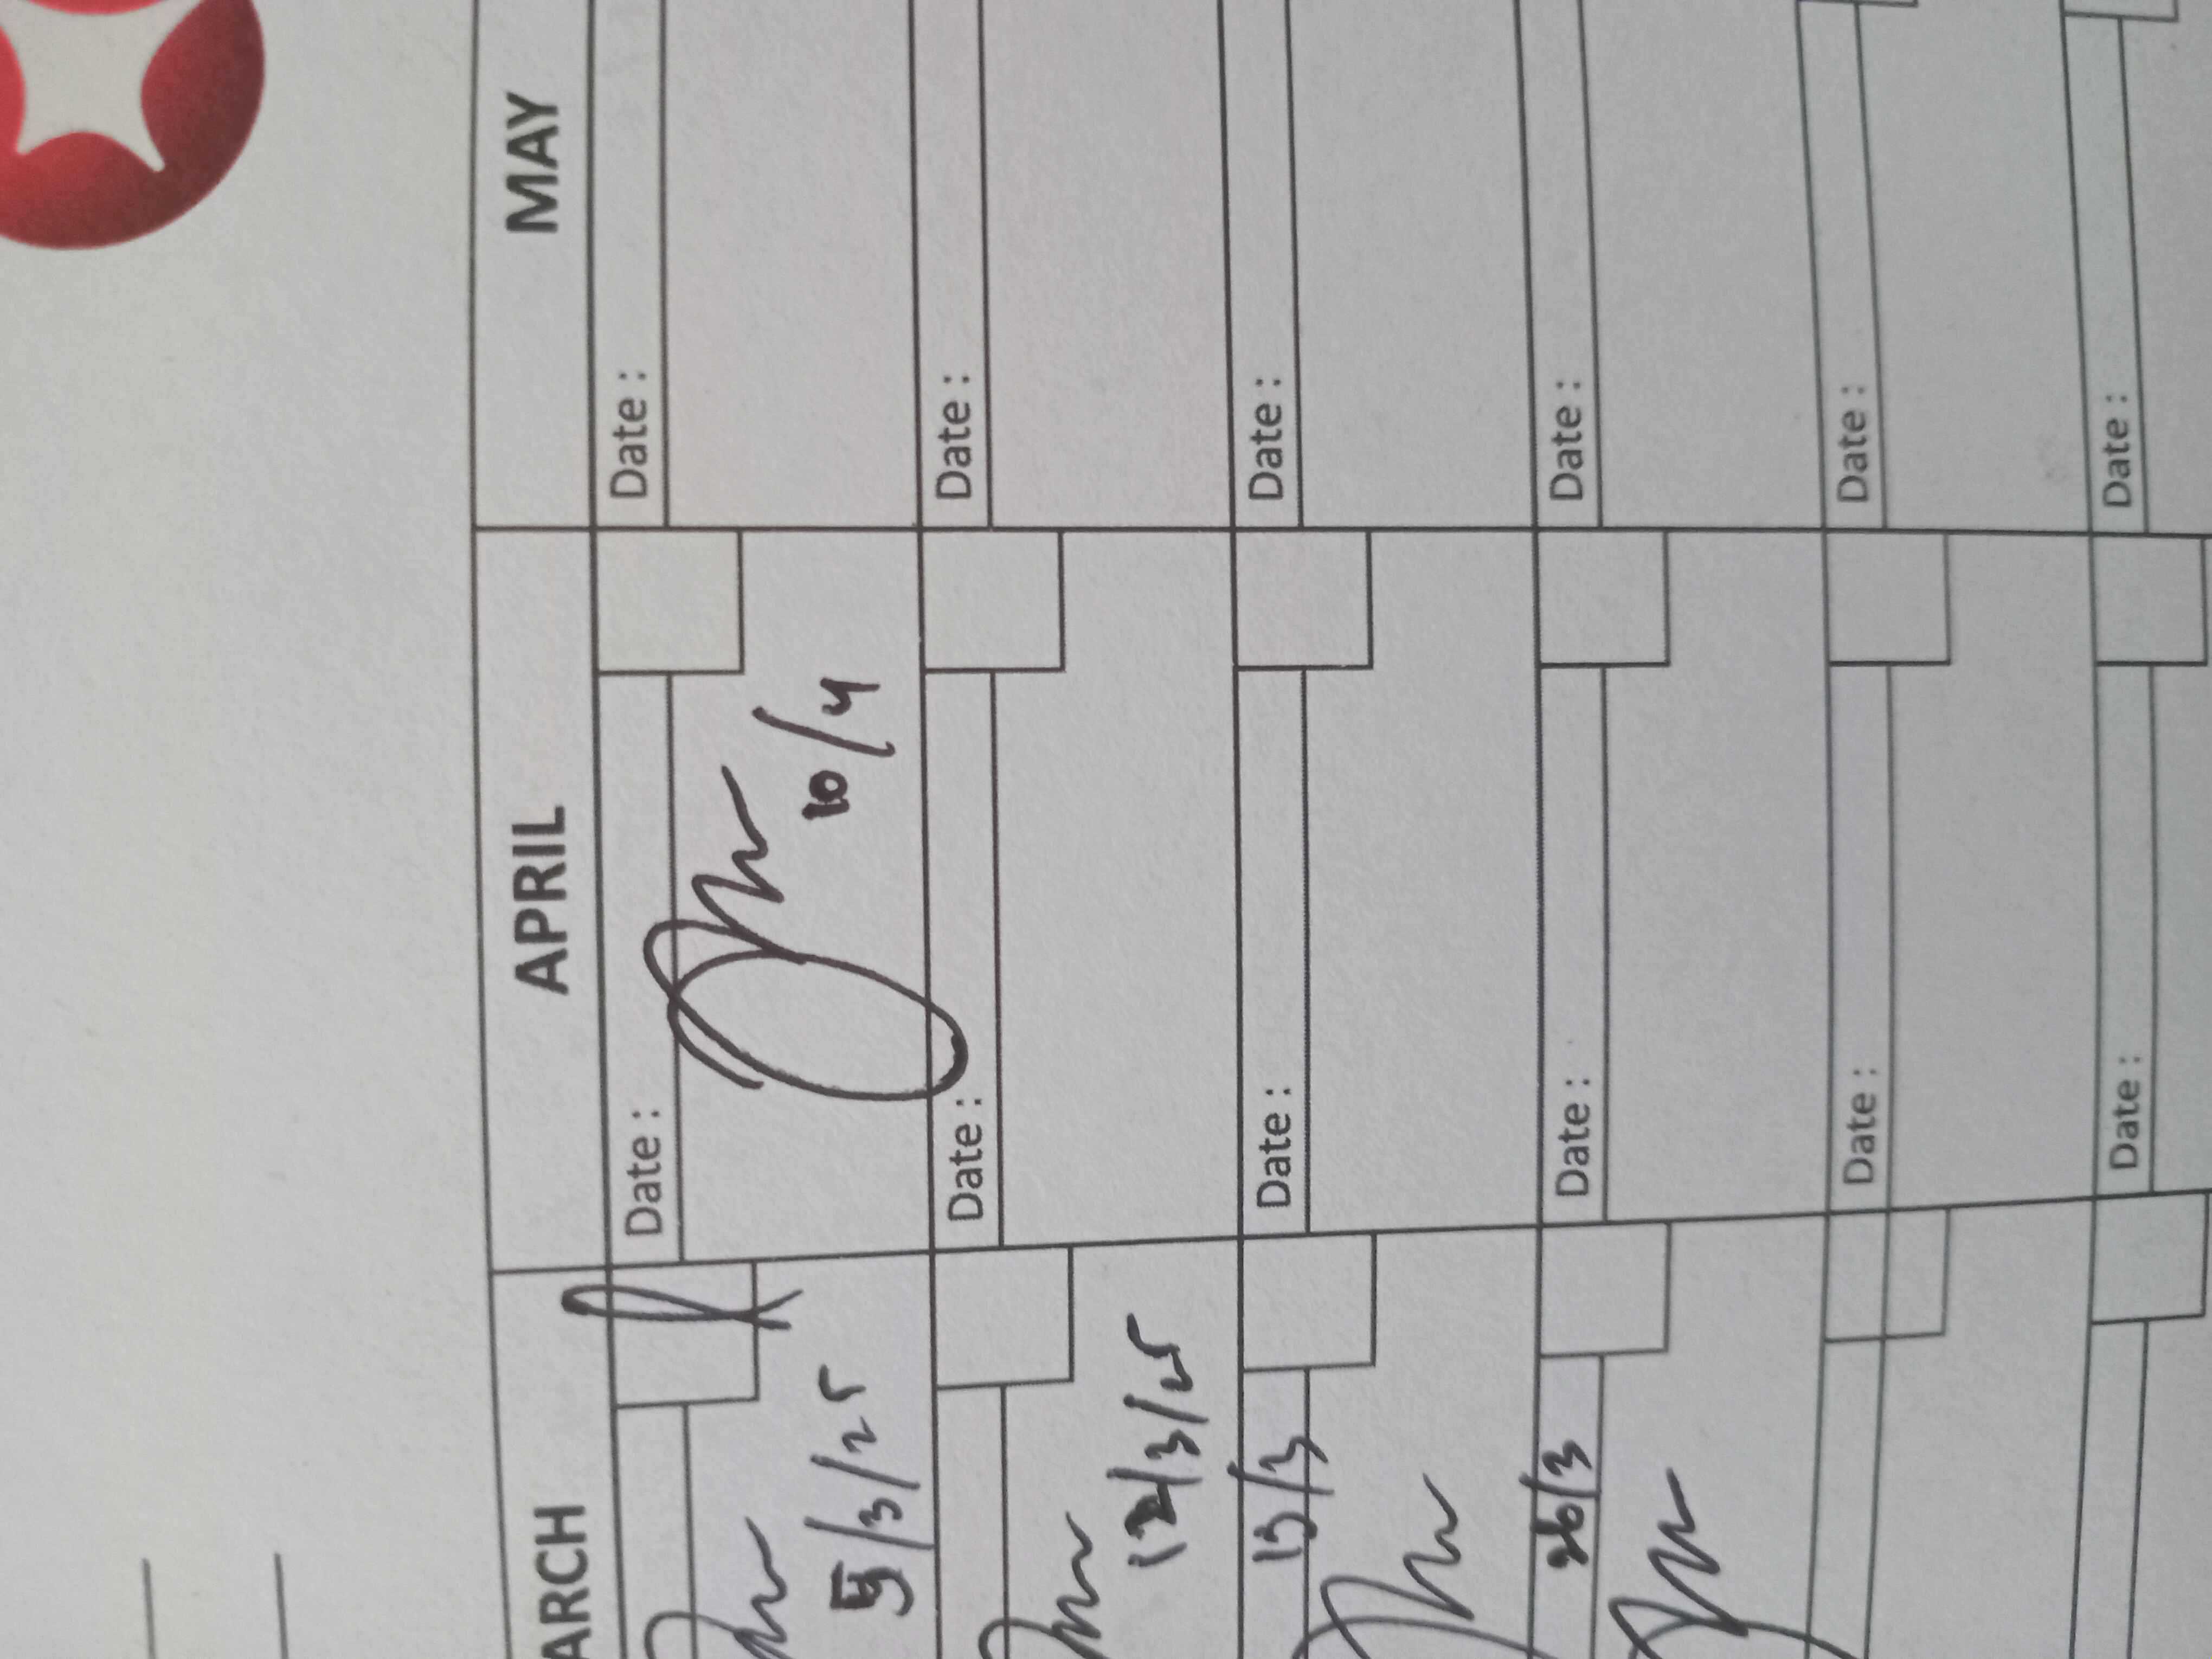 ARCH APRIL MAY
Date : Date :
10/4
5/3/25
Date : Date :
12/3/25
Date : Date :
Date : Date :
26/3
Date : Date :
Date : Date :